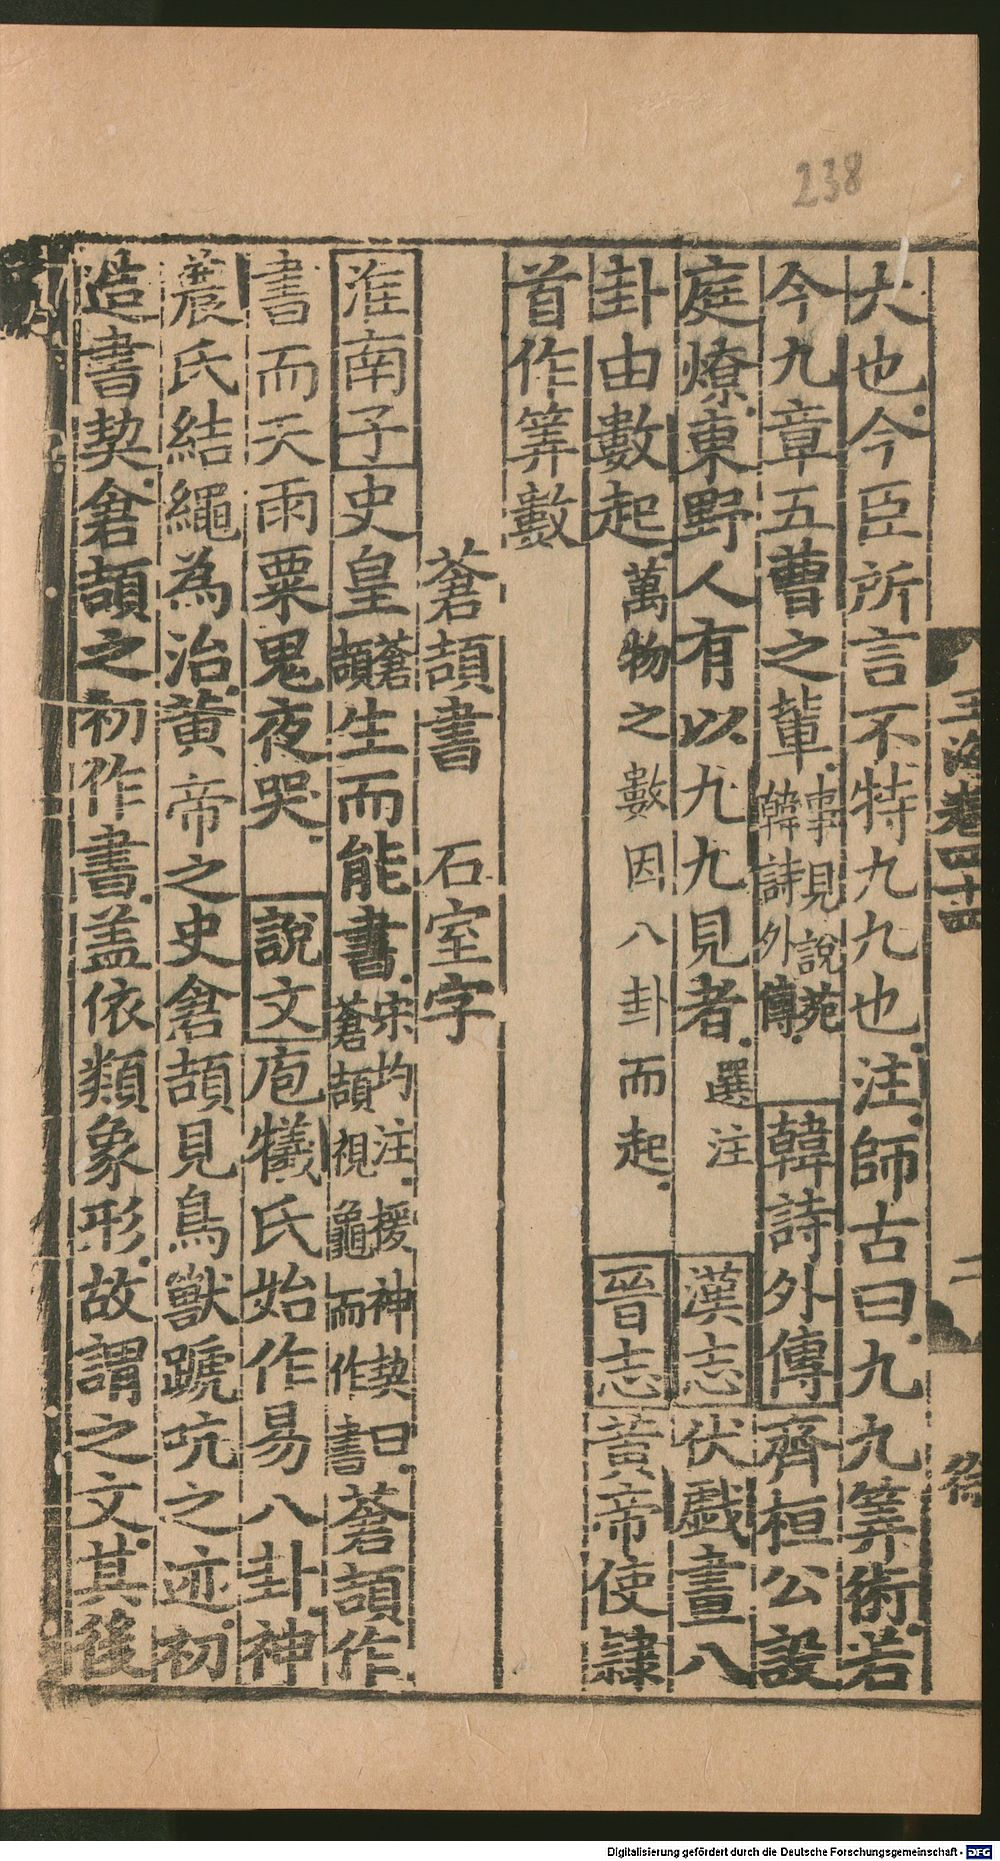 238
玉海卷四十四
二
大也今臣所言不特九九也注師古曰九九筭術若
今九章五曹之輩事見說苑韓詩外傳 韓詩外傳齊桓公設
庭燎東野人有以九九見者選注 漢志伏戲畫八
卦由數起萬物之數因八卦而起 晉志黃帝使隸
首作筭數
蒼頡書 石室字
淮南子史皇蒼頡生而能書宋均注援神契曰蒼頡視龜而作書蒼頡作
書而天雨粟鬼夜哭 說文庖犧氏始作易八卦神
農氏結繩為治黃帝之史倉頡見鳥獸蹏迒之迹初
造書契倉頡之初作書盖依類象形故謂之文其後
Digitalisierung gefördert durch die Deutsche Forschungsgemeinschaft - DFG